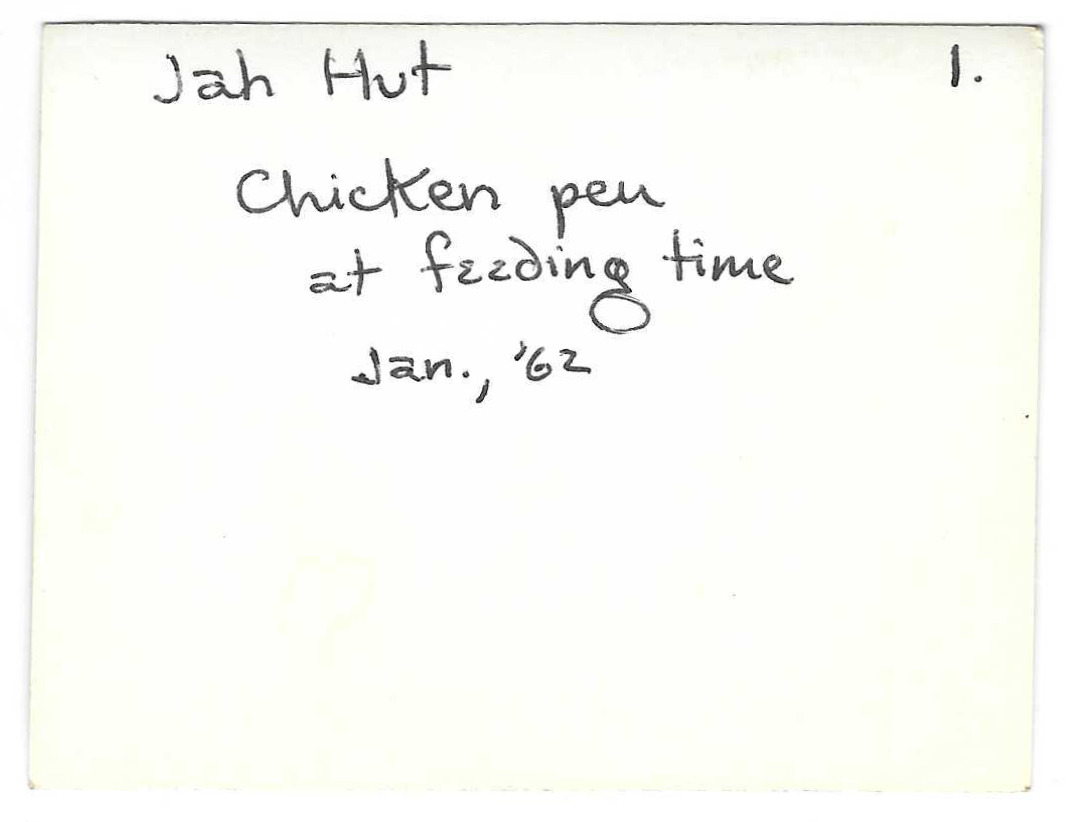 Jah Hut 1.
Chicken pen
at feeding time
Jan., '62